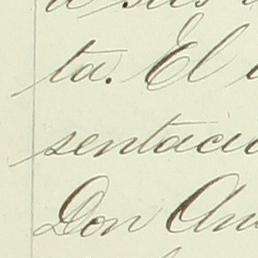 a sus
ta. El
sentaci
Don An